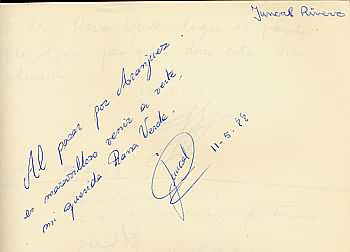 Juncal Rivero
Al pasar por Aranjuez
es maravilloso venir a verte,
mi querida Rana Verde.
Juncal
11-5-88